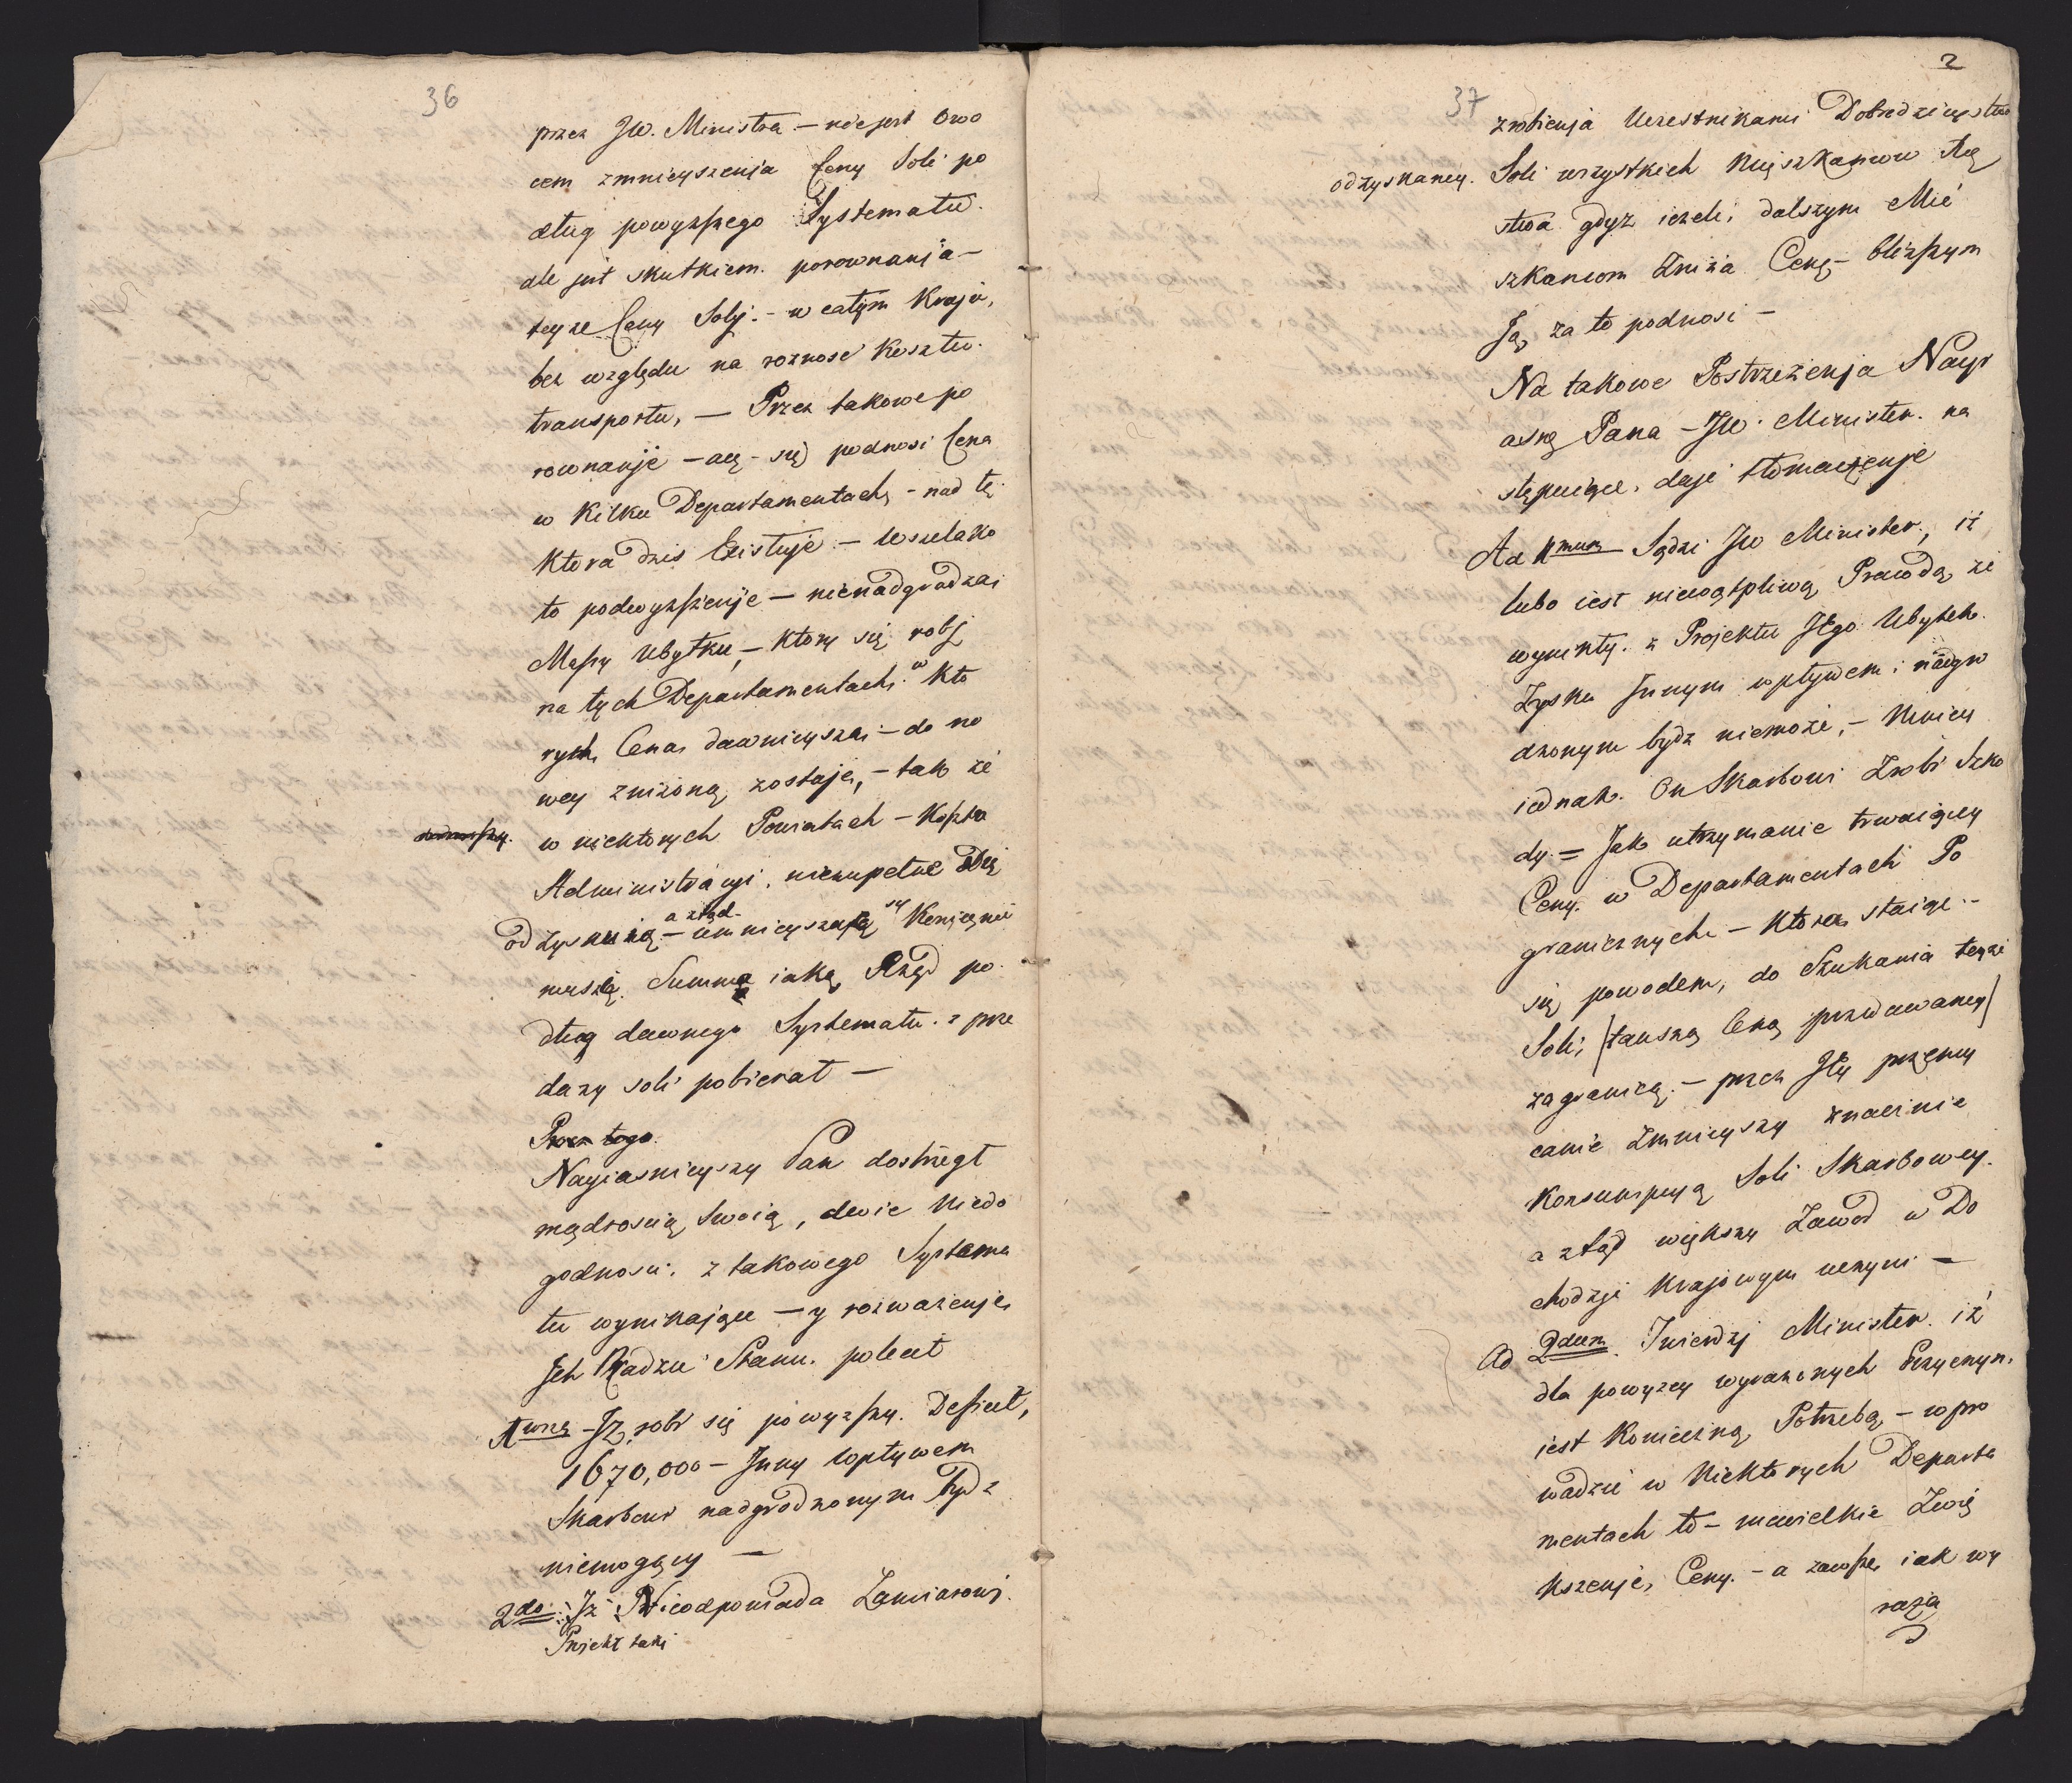 36
przez JW. Ministra — nie jest Owo
cem zmnieyszenia Ceny Soli po
dług powyższego Systematu.
ale jest skutkiem porownanja —
teyże Ceny Soly. — w całym Kraju,
bez względu na roznosć kosztu.
transportu, — Przez takowe po
rownanje — acz — się podnosi Cena
w kilku Departamentach — nad tę
ktora dzis Existuje — wszelako
to podwyższenje — nienadgradza
Massy Ubytku, — ktory się robj
na tych Departamentach w kto
rych Cena dawnieysza — do no
wey zniżoną zostaje, — tak że
w niektorych Powiatach — Koszta
Administracyi, niezupełne się
odzyskuią — a ztąd — umnieyszaią się koniecznie
muszą Summę iaką Rząd po
dług dawnego Systematu z prze
dazy soli pobierał —
Procz tego
Nayiasnieyszy Pan dostrzegł
mądrością Swoią, dwie Niedo
godnosci, z takowego Systema
tu wynikające — y rozwazenje
Ich Radzie Stanu. polecił
1mo — Iż robi się powyższy. Deficit,
1670,000 — Inny wpływem
Skarbowi nadgrodzonym bydz
niemogący —
2do Iż Nieodpowiada Zamiarowi
Projekt taki
2
37
zrobienja Uczestnikami Dobrodzieystwa
odzyskaney. Soli wszystkich Mięszkancow Xię
stwa gdyz iezeli, dalszym Mie
szkancom Zniża Cenę — bliższym
Ją za to podnosi —
Na takowe Postrzeżenja Nayi
asnę Pana — JW. Minister. na
stępuiące, daje tłomaczenje
Ad 1mum Sądzi JW Minister, iż
lubo iest niewątpliwą Prawdą że
wynikły z Projektu Jego Ubytek
Zysku Innym wpływem nadgro
dzonym bydz niemoże, — Mniey
iednak On Skarbowi Zrobi Szko
dy = Jak utrzymanie trwaiącey
Ceny w Departamentach Po
granicznych — ktora staiąc
się powodem, do Szukania teyże
Soli, /tanszą Ceną przedawaney/
zagranicą — przez Jey przemy
canie Zmnieyszy znacznie
Konsumpcyą Soli Skarbowey.
a ztąd większy Zawod w Do
chodzje Krajowym uczyni —
Ad 2dum Twierdzj Minister iż
dla powyzey wyrazonych Przyczyn,
iest Konieczną Potrzebą — wpro
wadzic w Niektorych Departa
mentach to — niewielkie Zwię
kszenje, Ceny — a zawsze iak wy
raża